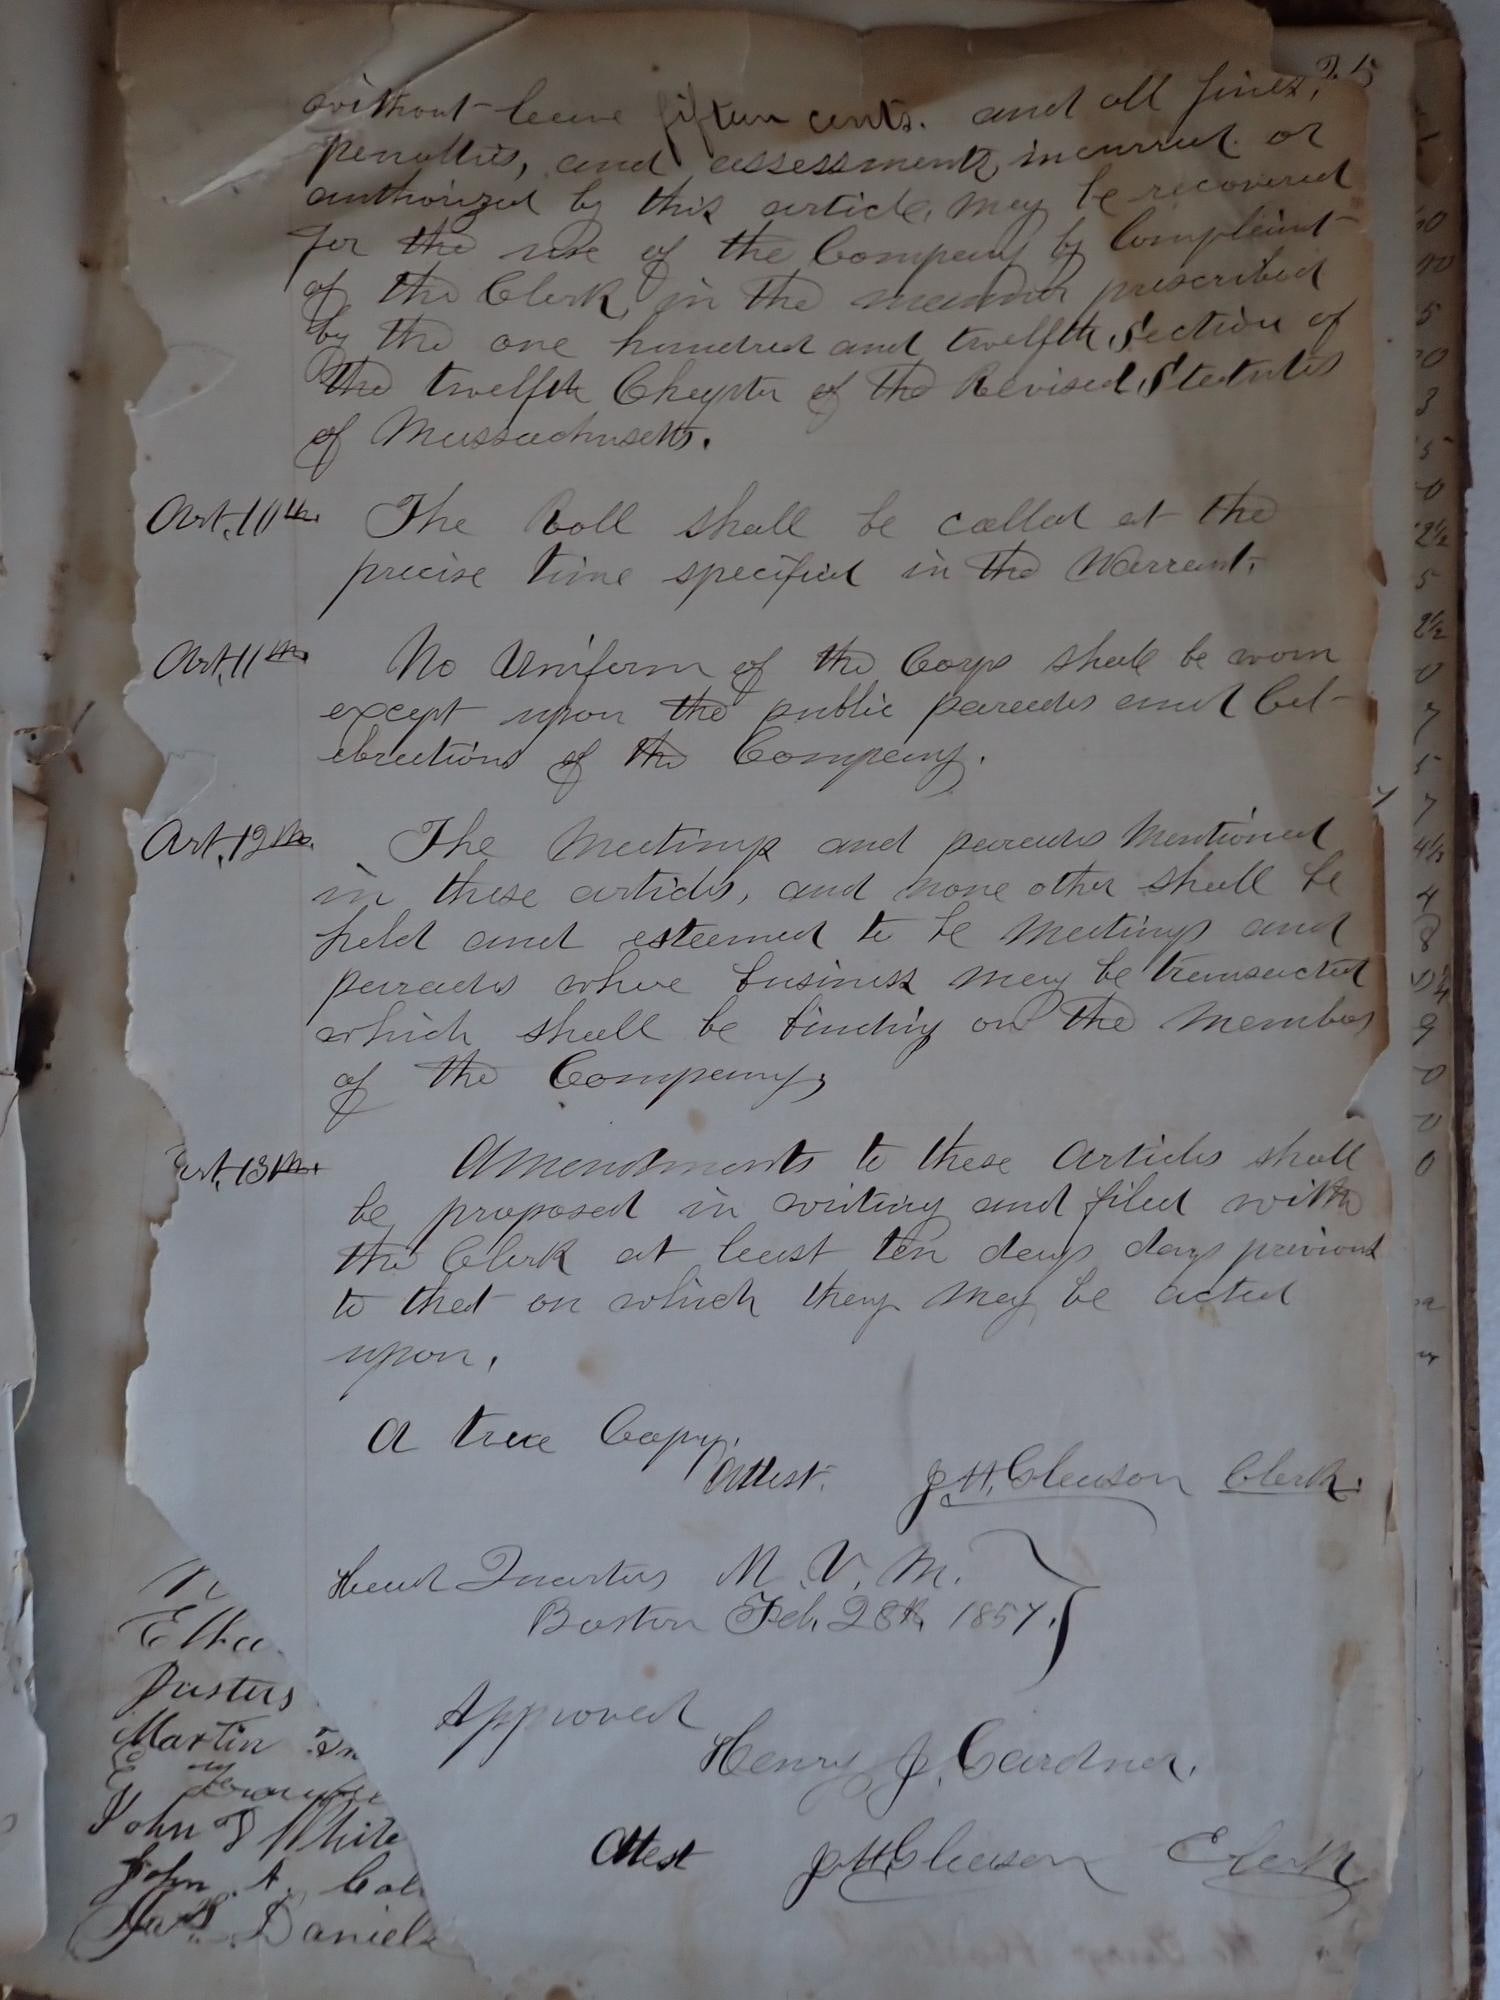 25
without leave fifteen cents. and all fines,
penalties, and assessments, incurred or
authorized by this article, may be recovered
for the use of the Company by Complaint
of the Clerk, in the manner prescribed
by the one hundred and twelfth, Section of
the twelfth Chapter of the Revised, Statutes
of Massachusetts.
Art. 10th. The Roll shall be called at the
precise time specified in the Warrant.
Art. 11th. No Uniform of the Corps shall be worn
except upon the public parades and Cel-
ebrations of the Company.
Art. 12th. The Meetings and parades Mentioned
in these articles, and none other shall be
held and esteemed to be Meetings and
parades where business may be transacted
which shall be binding on the Members
of the Company,
Art. 13th. Amendments to these Articles shall
be, proposed in writing and filed with
the Clerk at least ten days days previous
to that on which they may be acted
upon.
A true Copy.
Attest. J. H. Gleason Clerk.
Head Quarters M. V. M.
Boston Feb. 28th, 1857.
Approved
Henry J. Gardner.
Attest J. H. Gleason Clerk
Martin
John White
John A.
Daniels